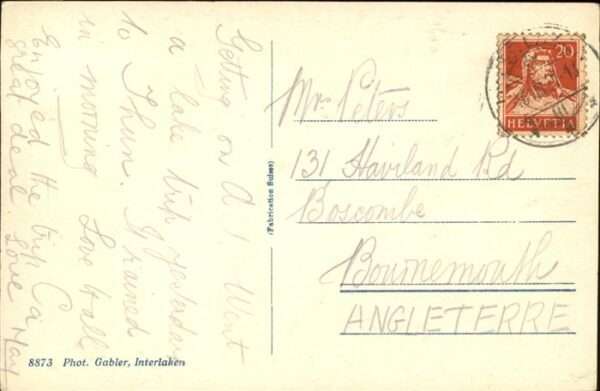 Getting on A1. Went
a lake trip yesterday
to Thun. It rained
in morning Love to all
Enjoyed the trip
great deal Love May
Mrs Peters
131 Haviland Rd
Boscombe
Bournemouth
ANGLETERRE
20
HELVETIA
(Fabrication Suisse)
8873 Phot. Gabler, Interlaken